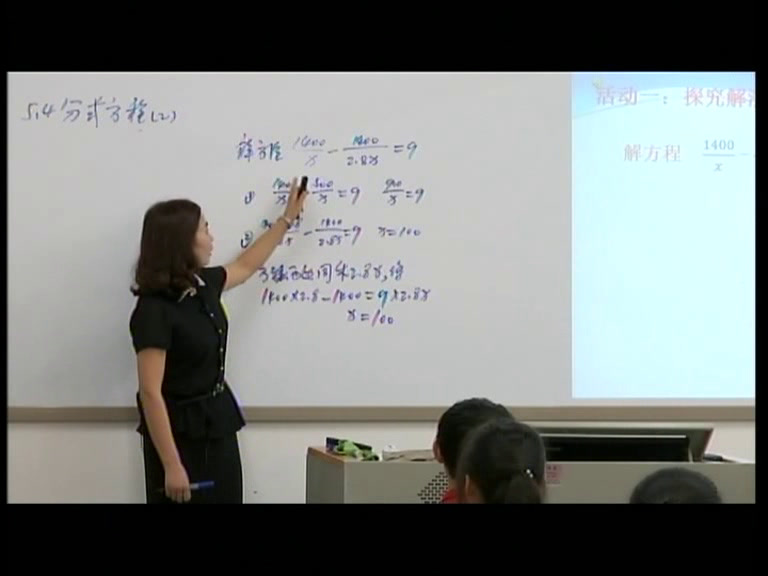 5.4 分式方程(2)
活动一：探究解
解方程 1400/x -
解方程 1400/x - 1400/2.8x = 9
① 1400/x - 500/x = 9  900/x = 9
② - 1400/2.8x = 9  x = 100
方程两边同乘2.8x，得
1400×2.8-1400=9×2.8x
x=100